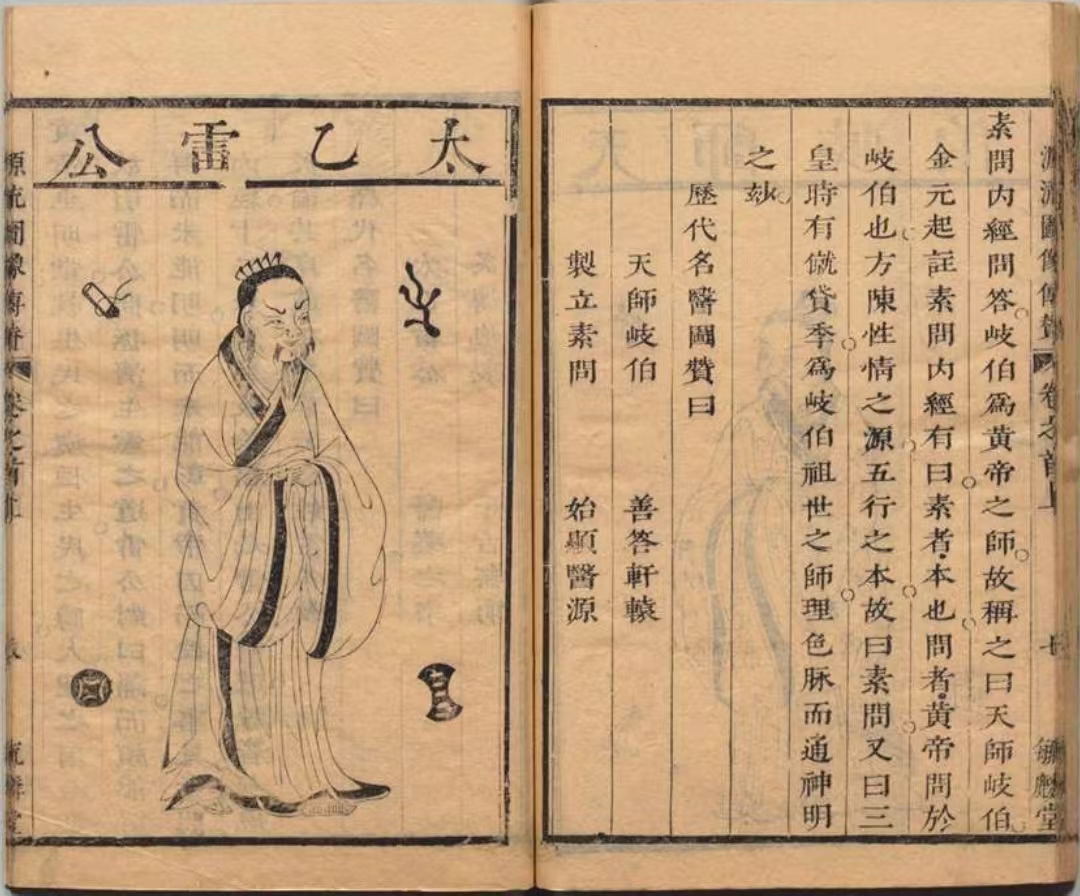 源流圖像傳贊 卷之首上 七 敏慇堂
素問內經問答岐伯爲黃帝之師故稱之曰天師岐伯
金元起註素問內經有曰素者本也問者黃帝問於
岐伯也方陳性情之源五行之本故曰素問又曰三
皇時有僦貸季爲岐伯祖世之師理色脉而通神明
之玅
歷代名醫圖贊曰
天師岐伯 善答軒轅
製立素問 始顯醫源
太乙雷公
源流圖像傳贊 卷之首上